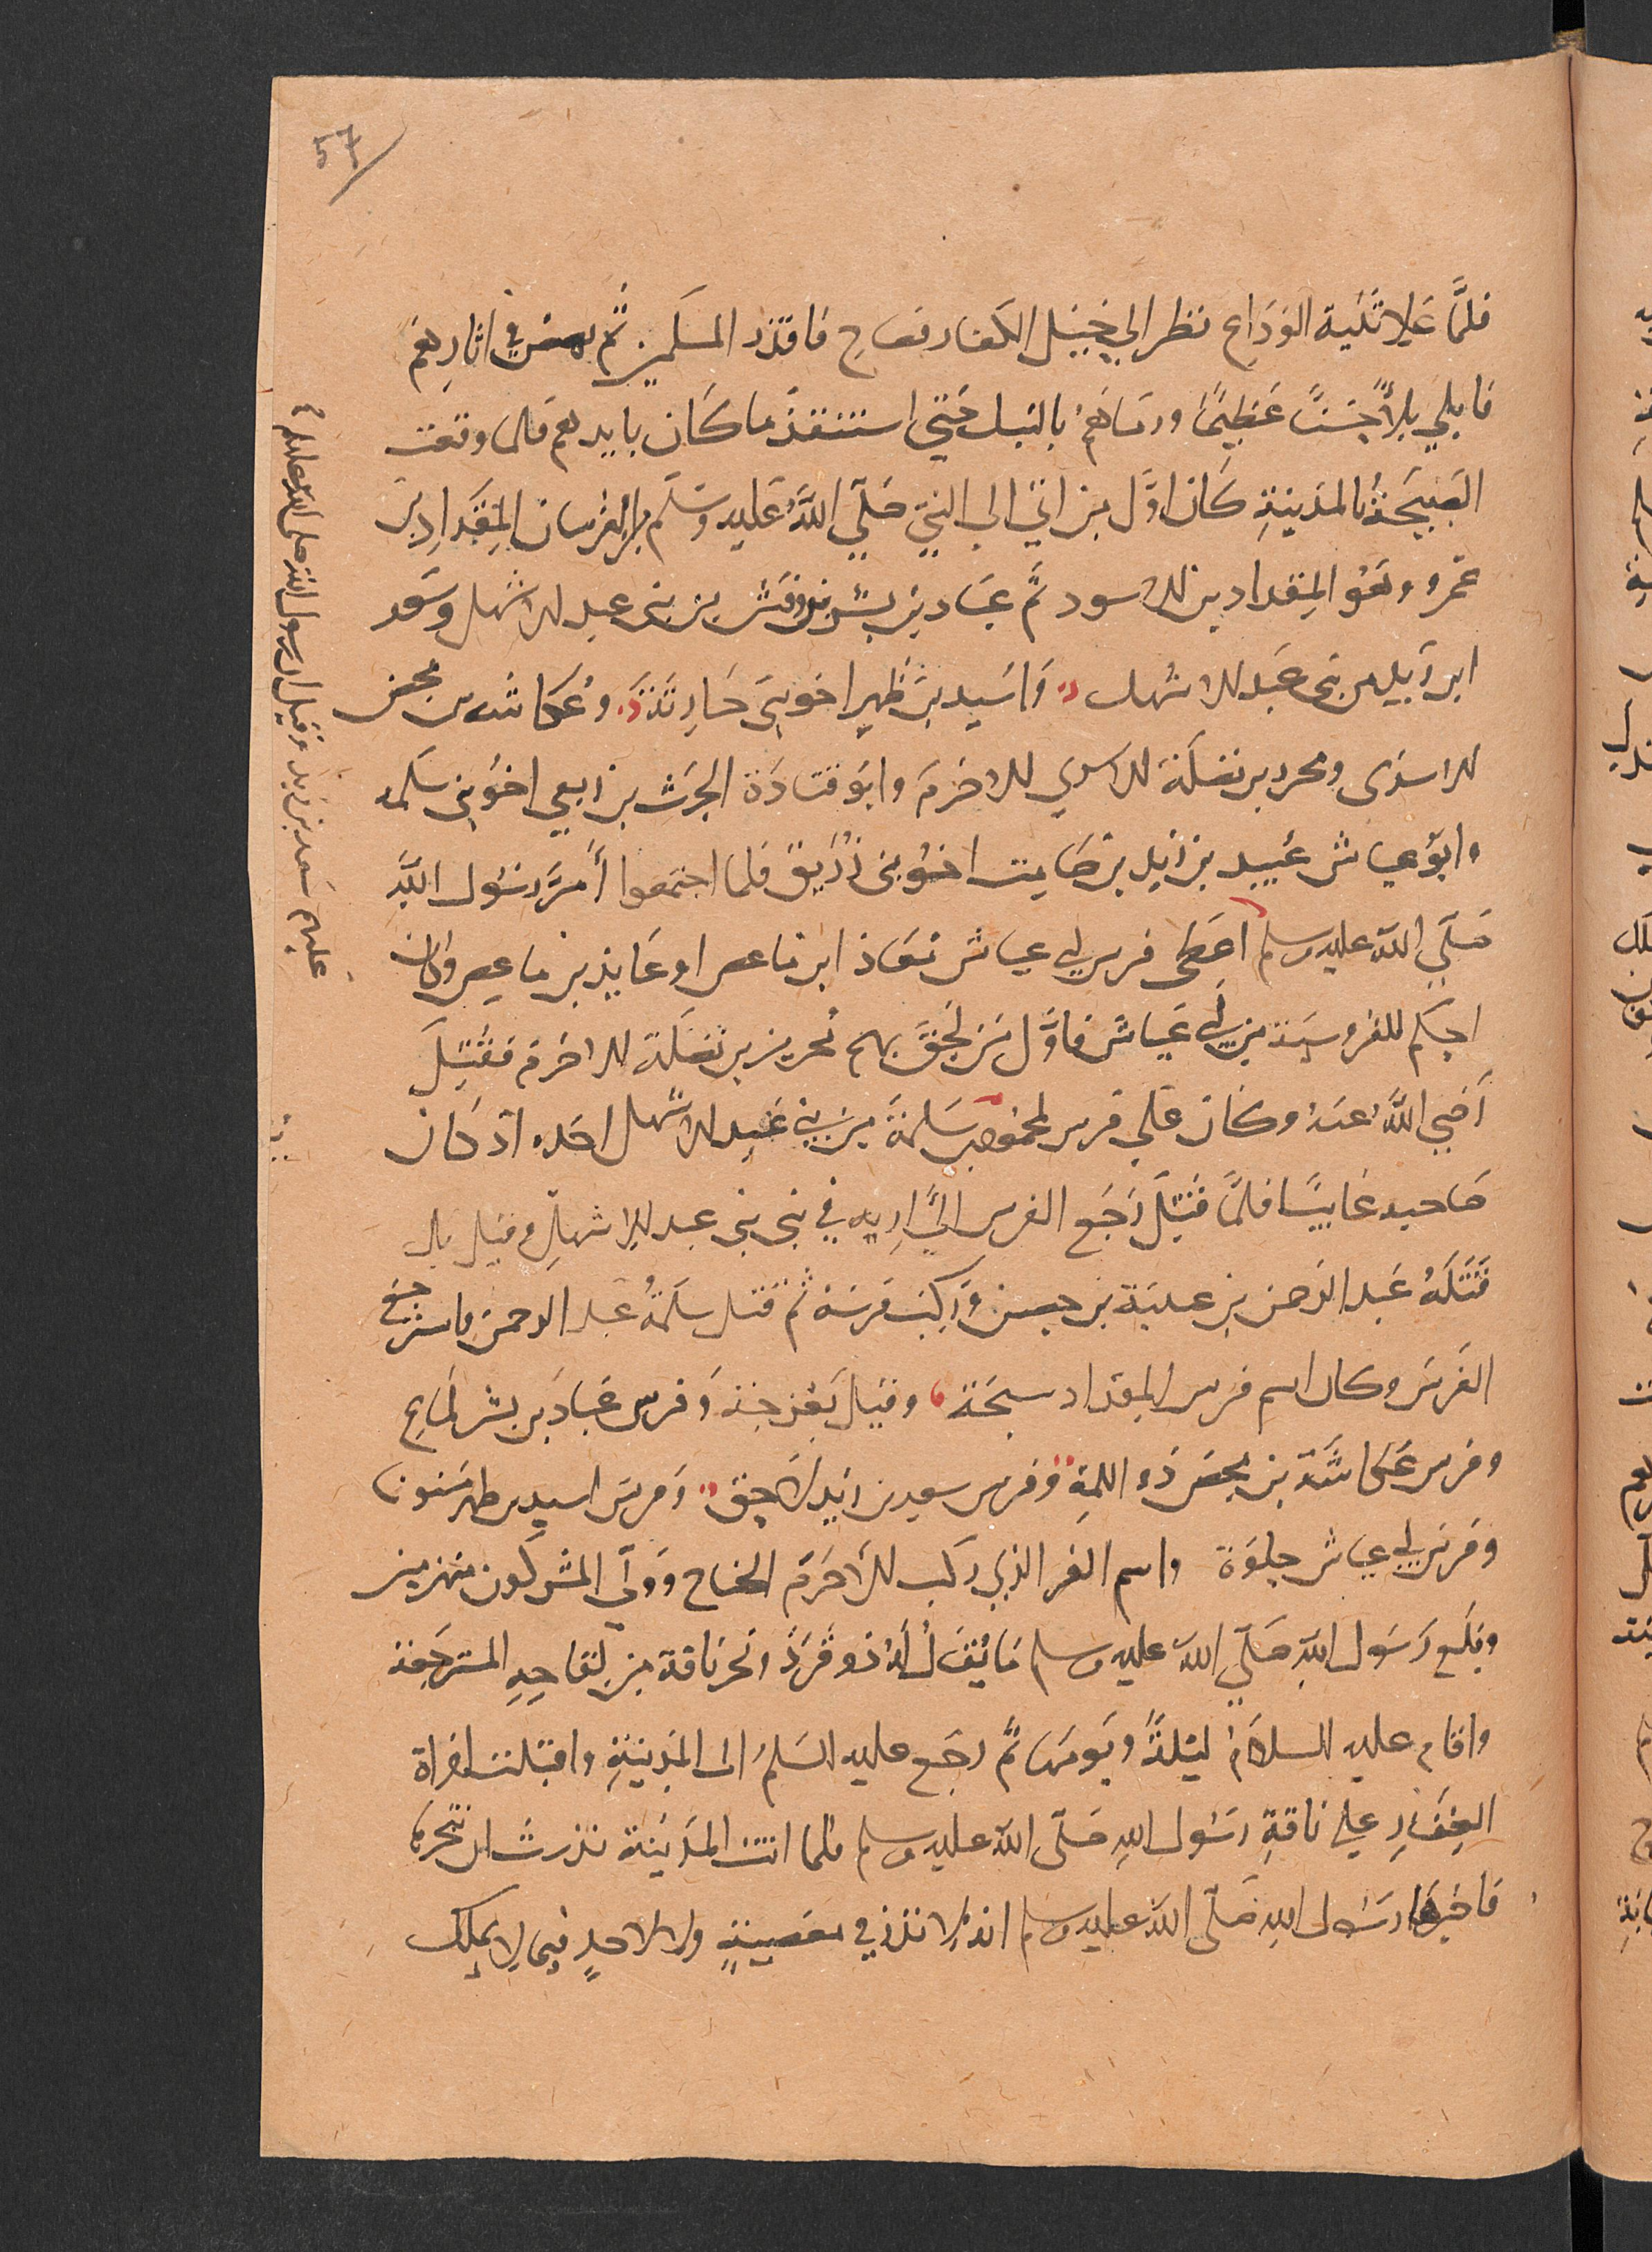 57
فلمَّا عَلا ثَنية الودَاع نظر الي خيل الكفار فصاح فانذر المسلمين ثم نهض في اثارهم
فابلي بلاً حسناً عَظيمًا ورماهم بالنبل حتي استنقذ ما كان بايديهم فلما وقعت
الصيحة بالمدينةِ كان اوَّل من اتي الى النبيّ صَلّي اللهُ عَليه وسَلم من الفرسان المِقدادِ بن
عمرو وهو المِقداد بن الاسود ثم عبَاد بن بشر بن وقش من بني عبد الاشهل وسَعد
ابن زيد من بني عَبد الاشهل واَسَيد بن ظهير اخو بني حَارِثَة وعُكاشه بن محصن
الاسدى ومحرز بن نضلة الاسدي الاخرم وابو قتادة الحرث بن ربعي اخو بني سلمه
وابو عياش عُبيد بن زيد بن صَامِت اخو بني زُرَيق فلما اجتمعوا أمرَّ رسُول اللهِ
صَلّي الله عليه وسلم اعطي فرس ابي عياش مُعَاذ ابن ماعص او عَايذ بن ماعِص وكان
احكم للفروسية من ابي عَياش فاوَّل من لحق بهم محرز بن نضلة الاخرم فقُتِلَ
رَضي اللهُ عنه وكان علي فرس لمحمُود بن مسَلمة من بني عَبد الاشهل اخذه اذ كان
صَاحبه غايبًا فلمّا قُتِلَ رَجَع الفرس اليَّ اريه في بني بني عبد الاشهلِ وقيل بل
قَتَلَهُ عَبد الرَحمن بن عيينة بن حصن وَركبَ فرسَهُ ثم قتل سلمةُ عبد الرحمن واسترجع
الفَرس وكان اسم فرس المِقداد سبحة وقيل بَعْزجَة وَفرس عَبادَ بن بشر لمَاع
وفرس عَكاشَة بن محصَن ذو اللمة وفرس سعد بن زيد لاَحِق وَفرس اسيد بن ظهير مَسنون
وفرس ابي عياش جلوَة واسم الفرس الذي ركب الأَخرَم الجناح وَولّى المشركون منهزمين
وبلَغ رَسُول الله صَلّي الله عليه وسلم مَا يُقَالُ لَهُ ذو قَرَدٍ ونحر ناقة من لِقاحِهِ المسترجَعة
واقام عليه السلامُ ليلَةً ويَومًا ثُم رجَع عليه السَلمُ الى المَدينةِ واقبلت امراة
الغِفَارِ علي ناقةِ رسُول اللهِ صَلّى الله عليه وسلم فلما اتت المَدينة نذرت ان تنحرها
فاخبرها رسُول اللهِ صَلّى الله عليه وسلم انه لا نذر في معصيةٍ ولا لاحدٍ فيما لا يملك
عليهم سَعد بن زيد وقيل ان رسول الله صلى الله عليه وسلم